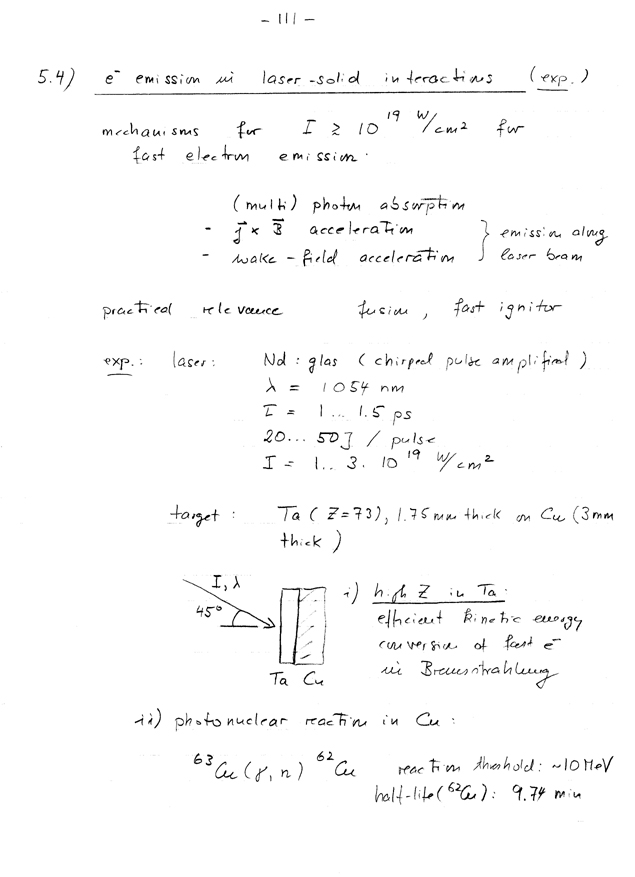 - 111 -
5.4) e⁻ emission in laser-solid interactions (exp.)
mechanisms for I ≳ 10¹⁹ W/cm² for
fast electron emission:
(multi) photon absorption
- j⃗ × B⃗ acceleration } emission along
- wake-field acceleration } laser beam
practical relevance fusion, fast ignitor
exp.: laser: Nd: glas (chirped pulse amplified)
λ = 1054 nm
τ = 1... 1.5 ps
20... 50J / pulse
I = 1.. 3. 10¹⁹ W/cm²
target: Ta (Z=73), 1.75 mm thick on Cu (3mm
thick)
I, λ
45°
Ta Cu
i) high Z in Ta:
efficient kinetic energy
conversion of fast e⁻
in Bremsstrahlung
ii) photonuclear reaction in Cu:
⁶³Cu (γ, n) ⁶²Cu reaction threshold: ~10 MeV
half-life (⁶²Cu): 9.74 min